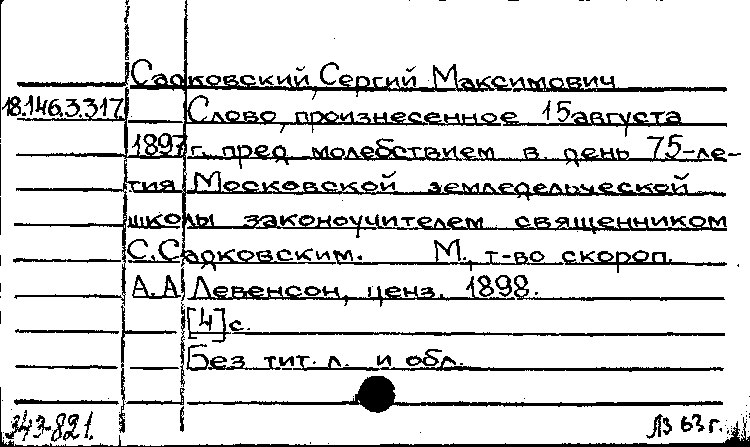 Садковский, Сергий Максимович
18.146.3.317. Слово, произнесенное 15 августа
1897 г. пред молебствием в день 75-ле-
тия Московской земледельческой
школы законоучителем священником
С. Садковским. М., т-во скороп.
А. А. Левенсон, ценз. 1898.
[4] с.
Без тит. л. и обл.
343-821. ЛЗ 63 г.